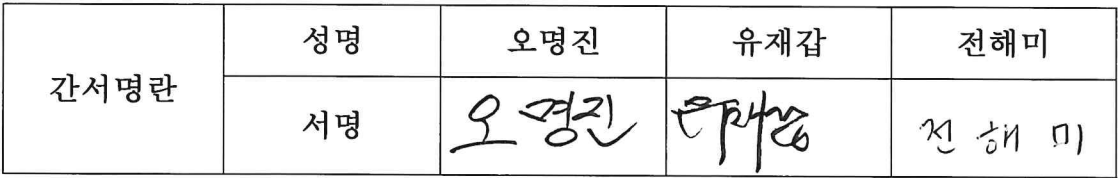 간서명란 성명 오명진 유재갑 전해미
서명 오명진 유재갑 전해미